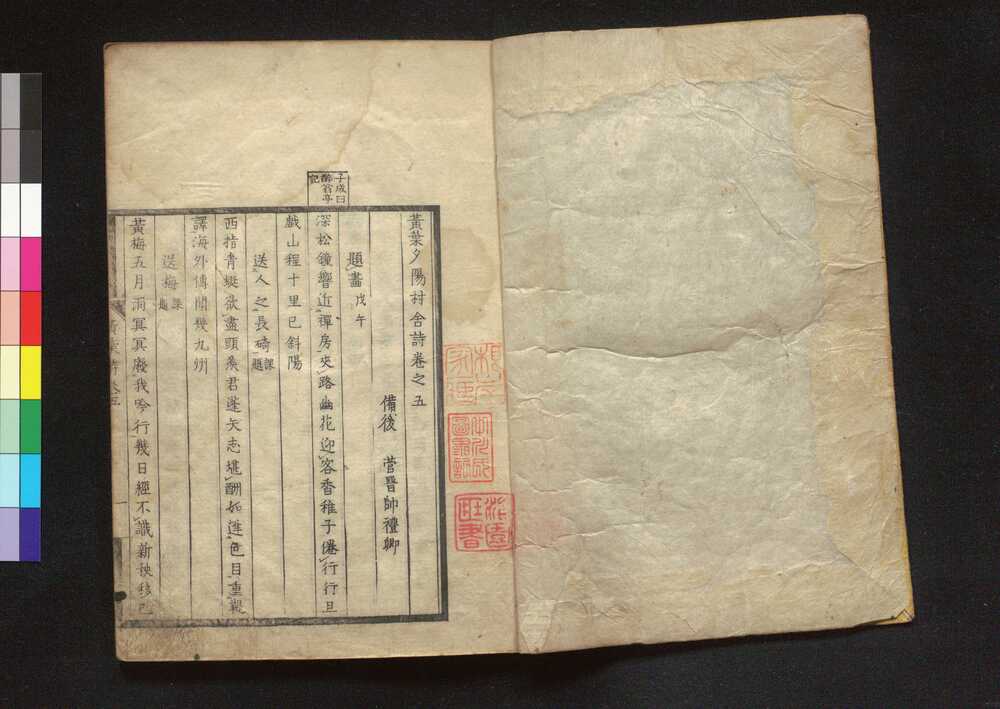 黃葉夕陽村舍詩卷之五
備後　菅晉帥禮卿
題畵 戊午
子成曰
醉翁亭
記
深松鏡響近禪房夾路幽花迎客香稚子倦行行且
戲山程十里已斜陽
送人之長碕 課題
西指青縱欲盡頭羨君蓬矢志堪酬如迷色目重
譯海外傳聞幾九州
送梅 課題
黃梅五月雨冥冥廢我吟行幾日經不識新秧移已